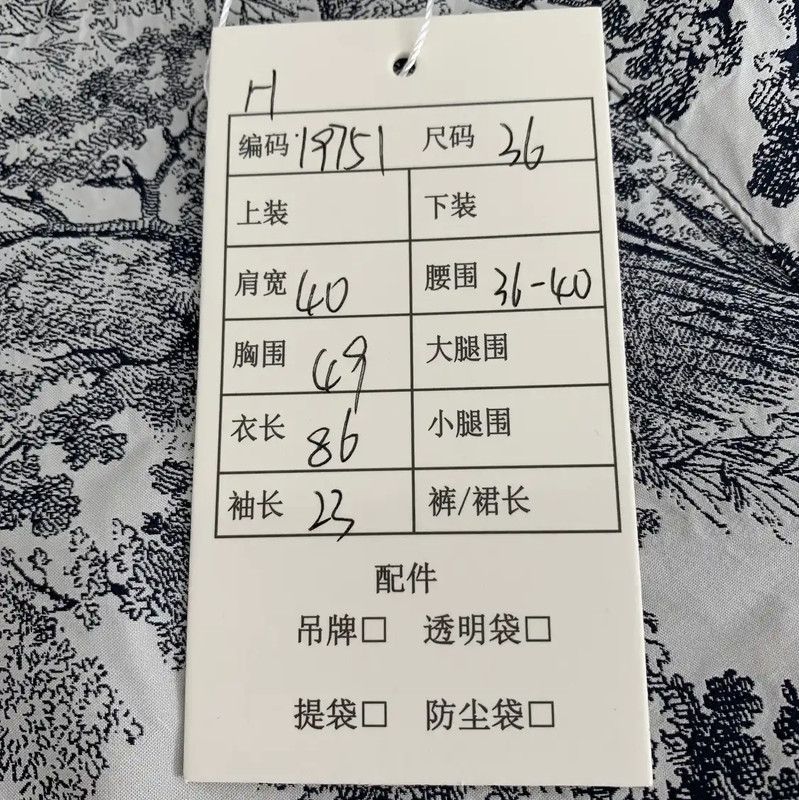 H
编码 19751 尺码 36
上装 下装
肩宽 40 腰围 36-40
胸围 49 大腿围
衣长 86 小腿围
袖长 23 裤/裙长
配件
吊牌□ 透明袋□
提袋□ 防尘袋□